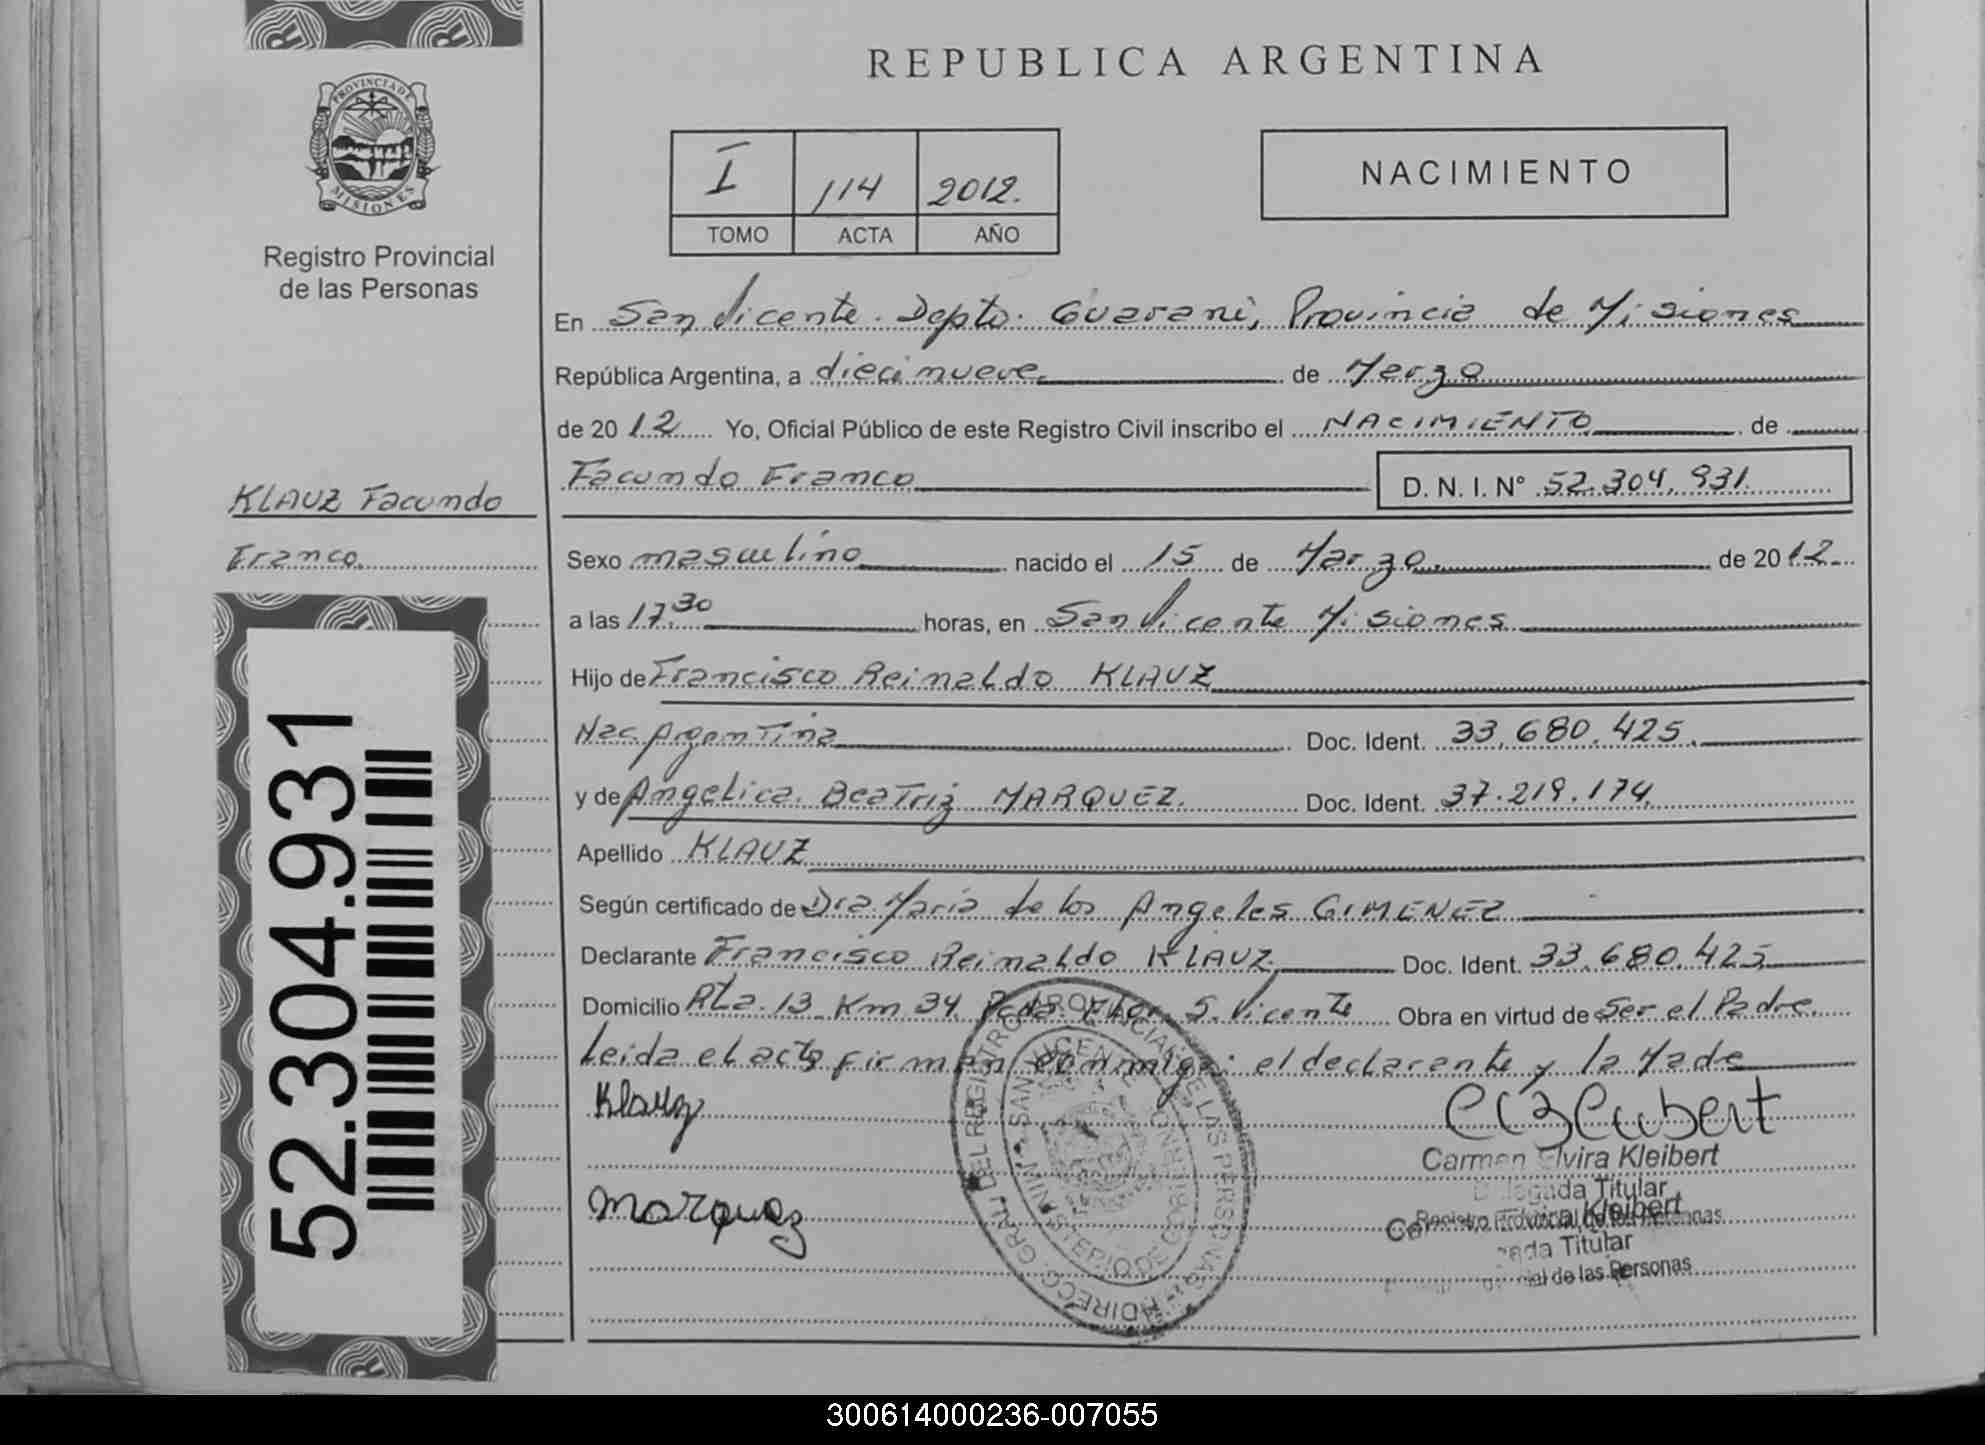 REPUBLICA ARGENTINA
PROVINCIA DE MISIONES
Registro Provincial
de las Personas
I 114 2012.
TOMO ACTA AÑO
NACIMIENTO
En San Vicente. Depto. Guarani, Provincia de Misiones
República Argentina, a diecinueve de Marzo
de 2012 Yo, Oficial Público de este Registro Civil inscribo el NACIMIENTO de
Facundo Franco D. N. I. N° 52.304.931.
KLAUZ Facundo
Franco
Sexo masculino nacido el 15 de Marzo de 2012
a las 17.30 horas, en San Vicente Misiones
Hijo de Francisco Reinaldo KLAUZ
Nac. Argentina Doc. Ident. 33.680.425.
y de Angelica Beatriz MARQUEZ. Doc. Ident. 37.219.174.
Apellido KLAUZ
Según certificado de Dra. Maria de los Angeles GIMENEZ
Declarante Francisco Reinaldo KLAUZ Doc. Ident. 33.680.425
Domicilio Rta. 13 Km 34 S. Vicente Obra en virtud de Ser el Padre.
Leida el acta firman conmigo: el declarante y la Made
Klauz
Marquez
Carmen Elvira Kleibert
Delegada Titular
Registro Provincial de las Personas
Kleibert
Titular
de las Personas
DIRECC. GRAL. DEL REGISTRO PROVINCIAL DE LAS PERSONAS
MINISTERIO DE GOBIERNO
SAN VICENTE
52.304.931
300614000236-007055